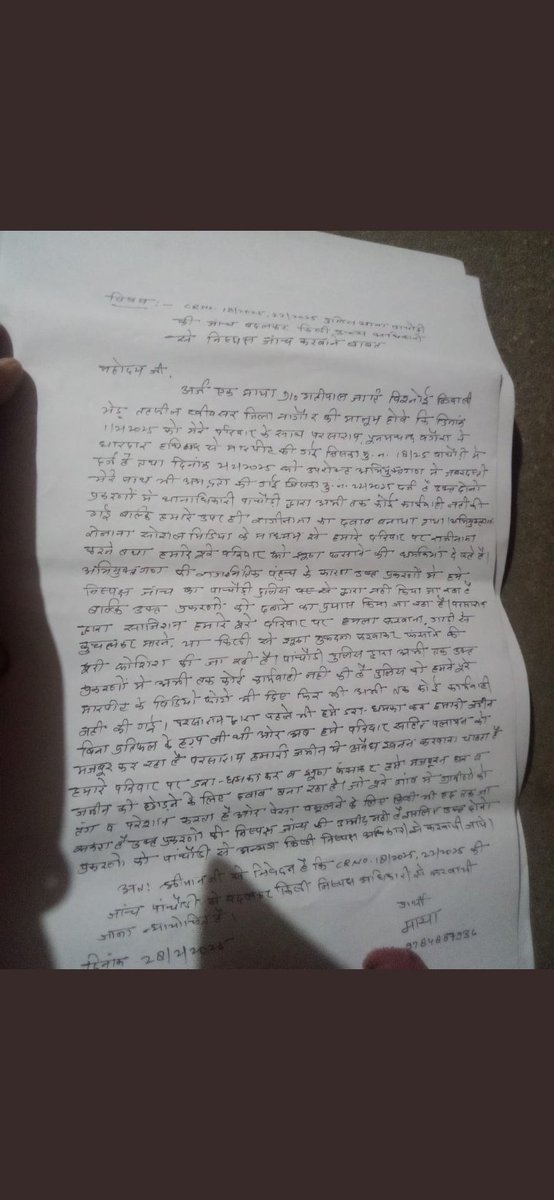 विषय :- CR NO. 18/2025, 22/2025 पुलिस थाना पाचौड़ी
की जांच बदलकर किसी अन्य अधिकारी
से निष्पक्ष जांच करवाने बाबत
महोदय जी,
अर्ज एक माया D/o जाति विश्नोई निवासी
तहसील खींवसर जिला नागौर की मालूम होवे कि दिनांक
1/2/2025 को मेरे परिवार के साथ परसाराम, वगैरा ने
धारदार हथियार से मारपीट की गई जिसका मु. न. 18/25 पाचौड़ी में
दर्ज है तथा दिनांक को उपरोक्त अभियुक्तगण ने जबरदस्ती
मेरे साथ भी की गई जिसका मु. न. 22/2025 दर्ज है उक्त दोनो
प्रकरणों में थानाधिकारी पाचौड़ी द्वारा अभी तक कोई कार्यवाही नहीं की
गई बल्कि हमारे उपर ही राजीनामा का दबाव बनाया गया।
सोशल मिडिया के माध्यम से हमारे परिवार पर राजीनामा
करने तथा हमारे पूरे परिवार को झूठा फसाने की धमकियां देते है।
अभियुक्तगण की राजनैतिक पंहुच के कारण उक्त प्रकरणों में हमे
निष्पक्ष जांच का पाचौड़ी पुलिस द्वारा नहीं किया जा रहा है
बल्कि उक्त प्रकरणों को दबाने का प्रयास किया जा रहा है। परसाराम
द्वारा साजिशन हमारे पूरे परिवार पर हमला करवाने, गाड़ी से
कुचलकर मारने, या किसी से झूठा मुकदमा करवाकर फंसाने की
पूरी कोशिश की जा रही है। पाचौड़ी पुलिस द्वारा अभी तक उक्त
प्रकरणों में अभी तक कोई कार्यवाही नहीं की है पुलिस को हमने पूरे
मारपीट के विडियो फोटो भी दिए फिर भी अभी तक कोई कार्यवाही
नहीं की गई। परसाराम द्वारा पहले भी हमे डरा-धमका कर हमारी जमीन
बिना प्रतिफल के हड़प ली थी और अब हमे परिवार सहित पलायन को
मजबूर कर रहा है परसाराम हमारी जमीन में अवैध खनन करवाना चाहता है
हमारे परिवार पर डरा-धमका कर व झूठा फंसाकर हमे मजबूरन घर व
जमीन को छोड़ने के लिए दबाव बना रहा है। जो पूरे गांव में ग्रामीणों को
तंग व परेशान करता है और पैसा वसूलने के लिए किसी भी हद तक जा
सकता है उक्त प्रकरणों की निष्पक्ष जांच की उम्मीद नहीं है इसलिए उक्त दोनो
प्रकरणो को पाचौड़ी से अन्यत्र किसी निष्पक्ष अधिकारी से करवायी जावे।
अतः श्रीमानजी से निवेदन है कि CR NO. 18/2025, 22/2025 की
जांच पाचौड़ी से बदलकर किसी निष्पक्ष अधिकारी से करवायी
जाना न्यायोचित है।
प्रार्थी
माया
दिनांक 28/2/2025